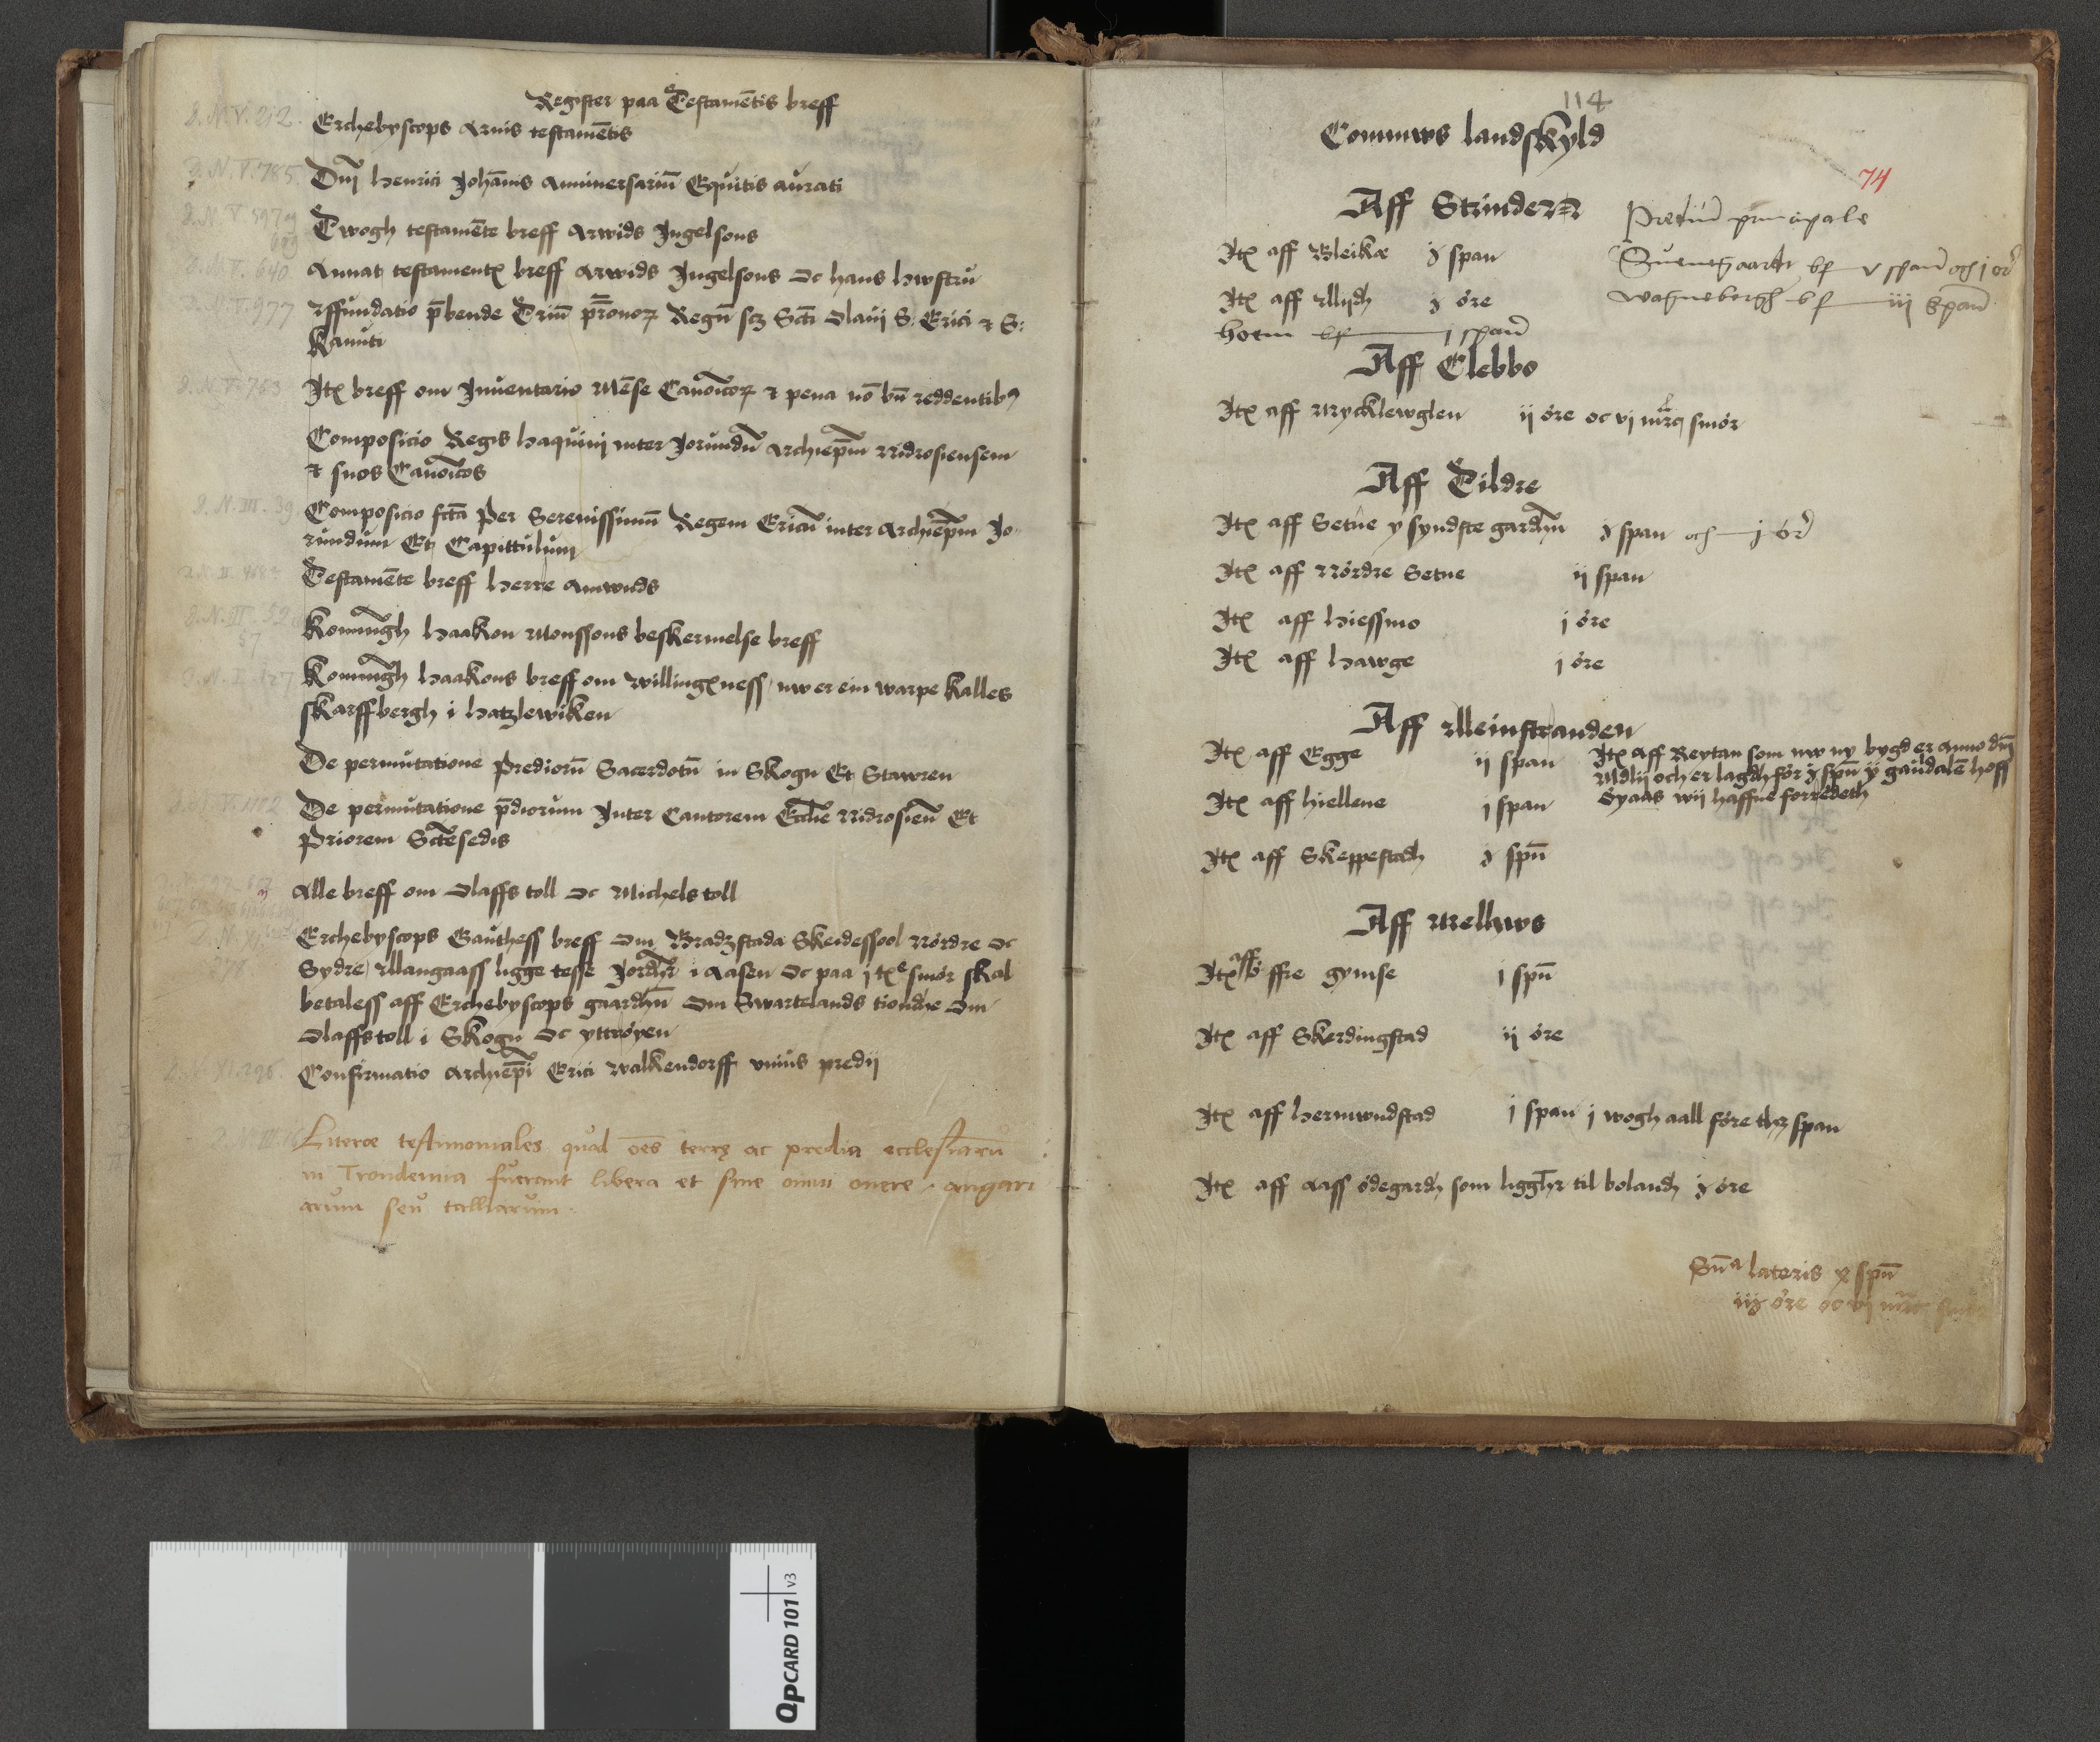 Register paa Testamētis breff
D.N.V. 212. Erchebyscops Arnis testamētis
D.N.V. 785. Dnī henrici Johānis Anniuersariū Equitis aurati
Twogh testamēte breff Arwids Jngelsons
D.N.V. 640 Annat testamentꝭ breff Arwids Jngelsons oc hans hwstru
D.N.V. 977 Fundatio p̄bende Triū pr̄onoꝝ Regū scꝫ Scti Olaui S: Erici ⁊ S:
Kanuti
D.N.V. 763 Jtꝭ breff om Jnuentario Mēse Canoīcoꝝ ⁊ pena nō bn̄ reddentibꝫ
Composicio Regis haquini inter Jorundū Archiep̄m Nidrosiensem
⁊ suos Canoīcos
D.N. III. 39. Composicio fctā per Serenissimū Regem Ericū inter Archiep̄m Jo
rundum Et Capittulum
Testamēte breff herre Amwnds
D.N. III. 52
57 Konningh haakon Monssons beskermelse breff
Konningh haakons breff om willingxness, nw er ein warpe kalles
skarffbergh i hatzlewiken
De permutatione prediorū Sacerdotū in Skogn Et Stawren
D.N.V. 1102 De permutatione p̄diorum Jnter Cantorem Eccle Nidrosien̄ Et
Priorem Sctesedis
Alle breff om Olaffs toll oc Michels toll
Erchebyscops Gauthess breff om Bradzstada Skeidessool Nórdre oc
Sydre, Mangaass ligge tesse Jorder i Aasen oc paa j tꝭᵉ smór skal
betaless aff Erchebyscops gaardhn̄ Om Swartelands tiondhe Om
Olaffs toll i Skogn oc yttróyen
XI. 296. Confirmatio Archiep̄i Erici Walkendorff vnius predij
Literæ testimoniales quod oēs terrę ac predia ecclesiarū
in Trondemia fuerant libera et sine omni onere angari
arum seu talliarum.
114
Commws landskyld
74
Aff Strinden
Jtꝭ aff Bleikæ span
Jtꝭ aff Mijdh óre
hoem bf j span̄
Predium principale
bf v span̄ och j ór
bf iij Span̄
Aff Clebbo
Jtꝭ aff Mycklewglen ij óre oc vj mrcꝭ smór
Aff Tildre
Jtꝭ aff Setne y syndste gardhn̄ span och j ór
Jtꝭ aff Nórdre Setne ij span
Jtꝭ aff hiessmo j óre
Jtꝭ aff hawge j óre
Aff Meinstranden
Jtꝭ aff Egge ij span
Jtꝭ aff Reytan som nw ny bygd er anno dnī
Mdlij och er lagdh fór spn̄ y gauldalē hoss
óyaas wij haffue forrēdeth
Jtꝭ aff hiellene j span
Jtꝭ aff Skeppestadh spn̄
Aff Melhws
Jtꝭ aff óffre gymse j spn̄
Jtꝭ aff Skerdingstad ij óre
Jtꝭ aff hermwndstad j span j wogh aall fóre thꝫ span
Jtꝭ aff Aass ódegardh som ligghr til bolandh óre
Sūᵃ lateris x spn̄
óre oc vj
QPCARD 101 v3